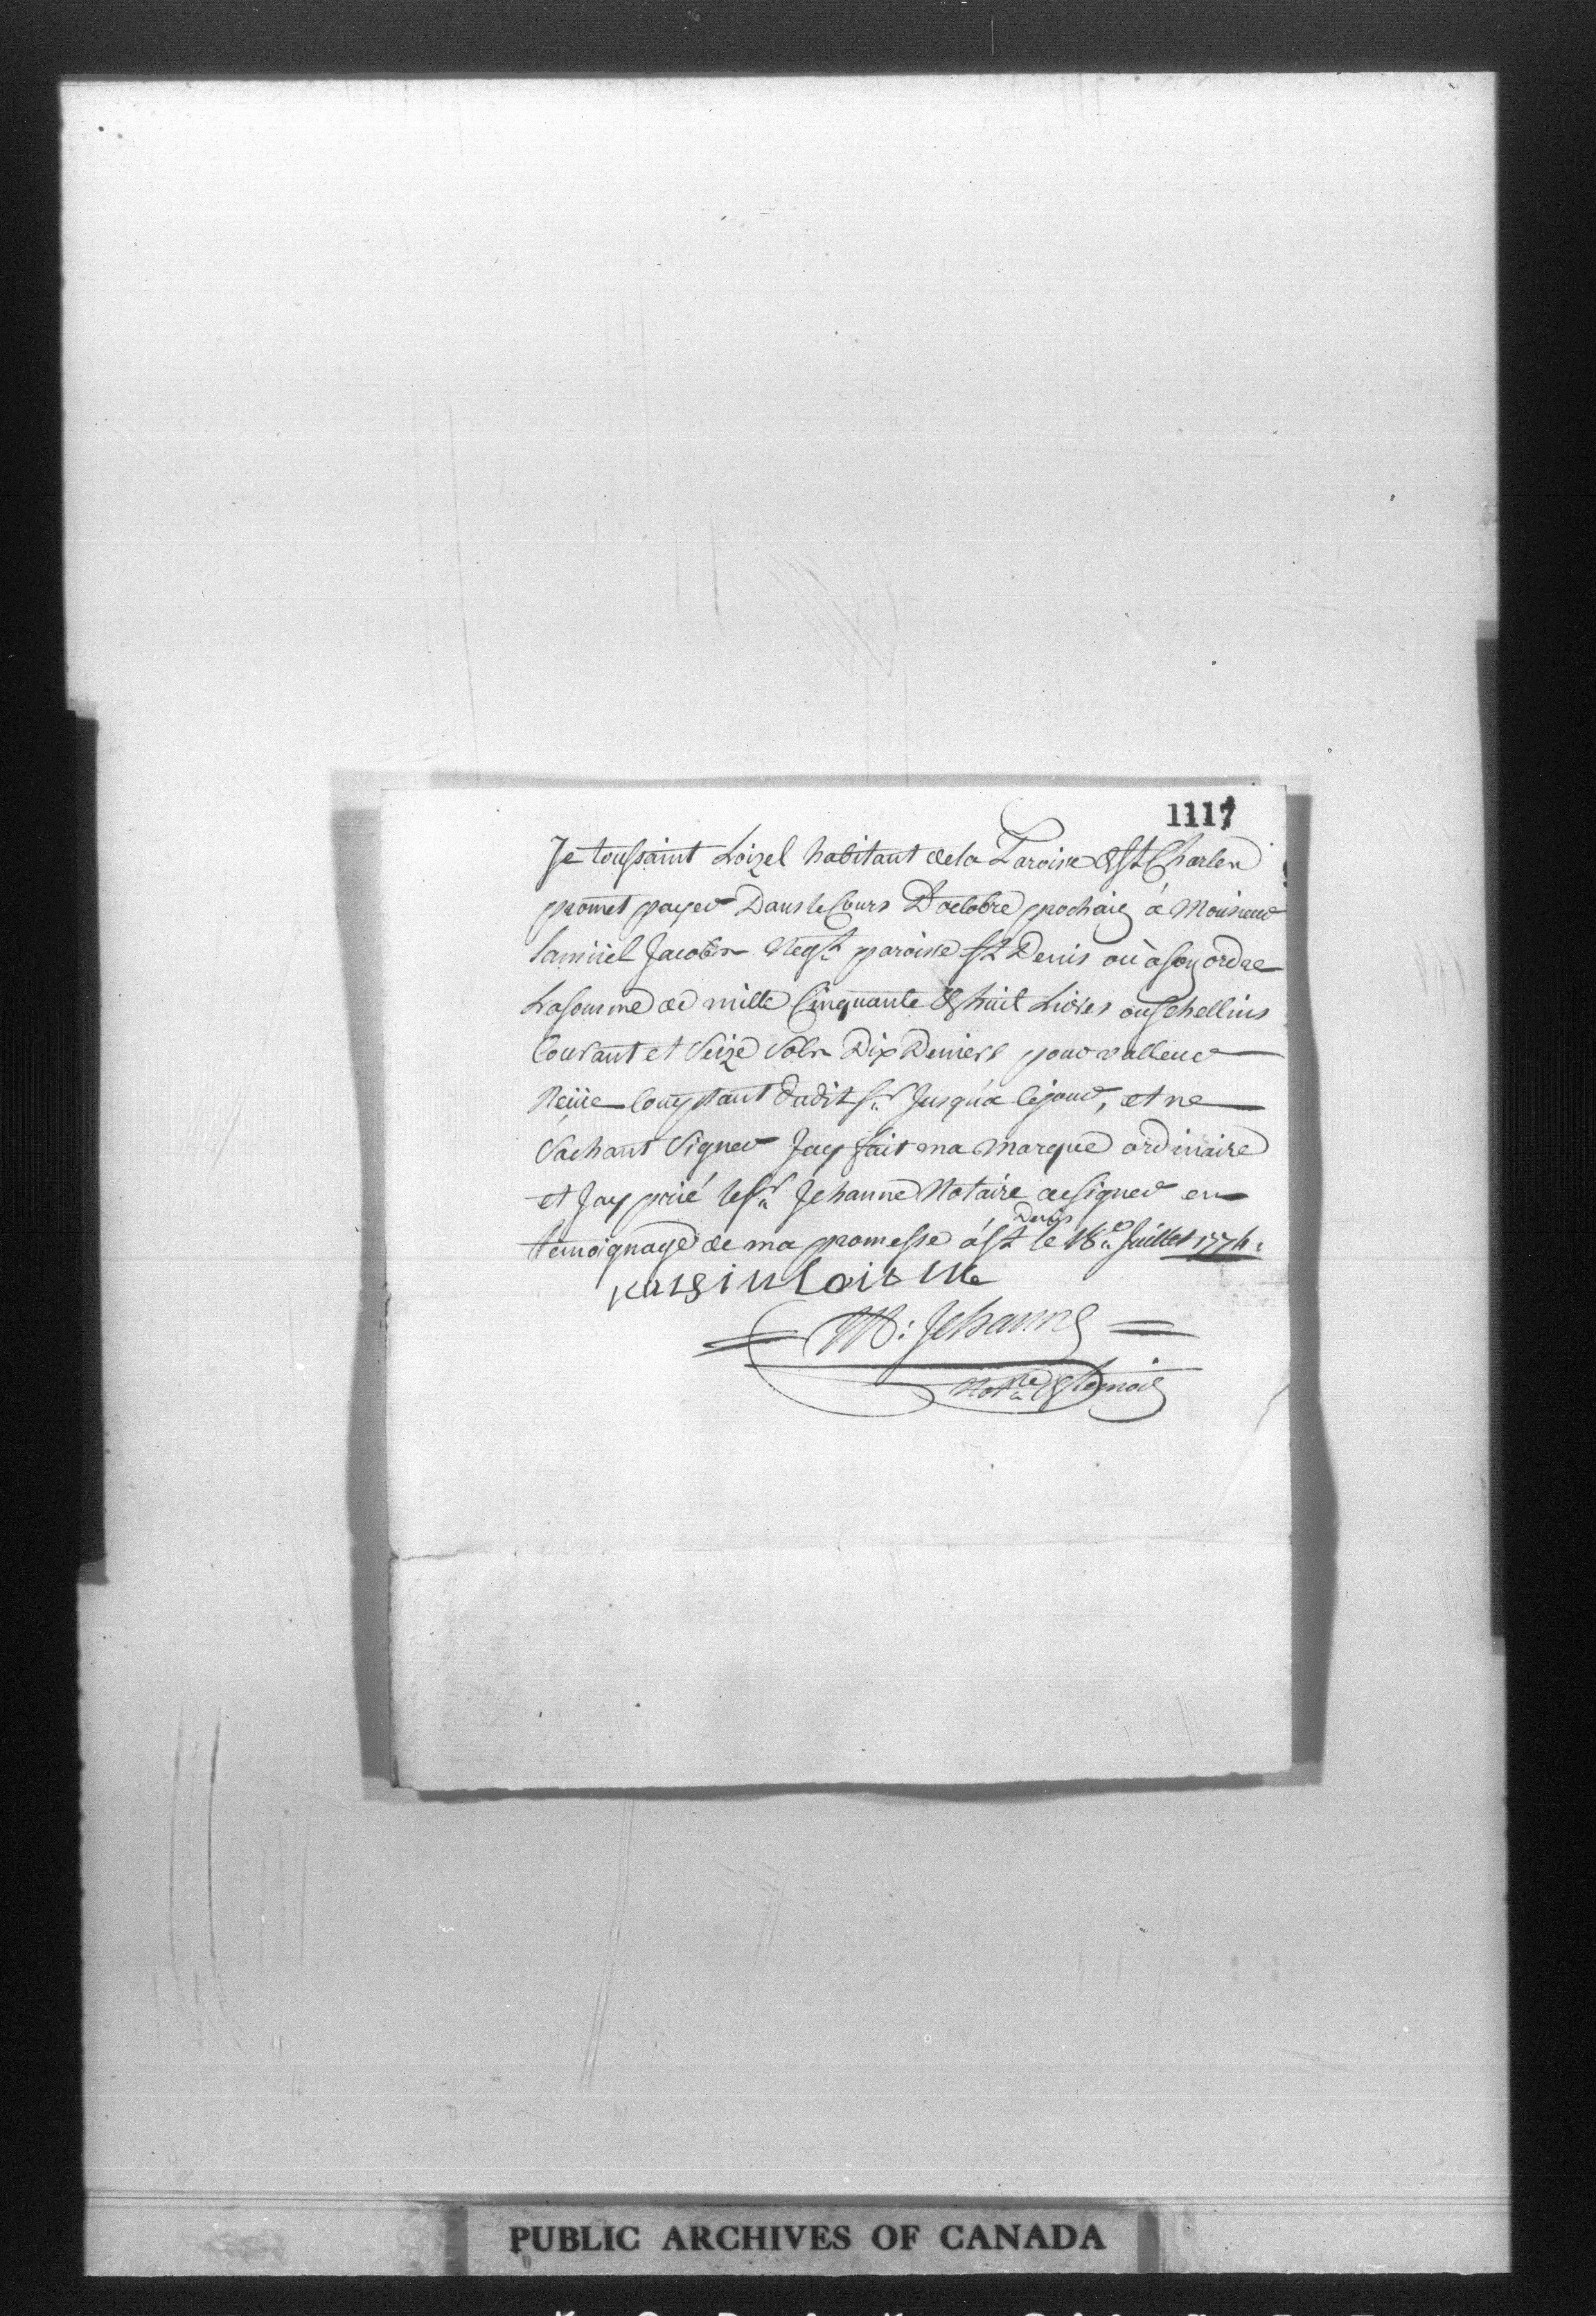 1117
Je toussaint Loizel habitant dela Paroisse de St Charles
promet payer Dans le Cours D'octobre prochain à Monsieur
Samüel Jacobs Negt. paroisse St Denis ou à son ordre
La somme de mille Cinquante & huit Livres ou Schellins
Courant et Seize Sols Dix Deniers pour valleur
Reçüe Comptant dudit Sr. Jusqu'a ce jour, et ne
Sachant Signer Jay fait ma marque ordinaire
et Jay prié le Sr. Jehanne Notaire de signer en
témoignage de ma promesse à St Denis le 18e. Juillet 1774.
M: Jehanne
Notre & temoin
PUBLIC ARCHIVES OF CANADA